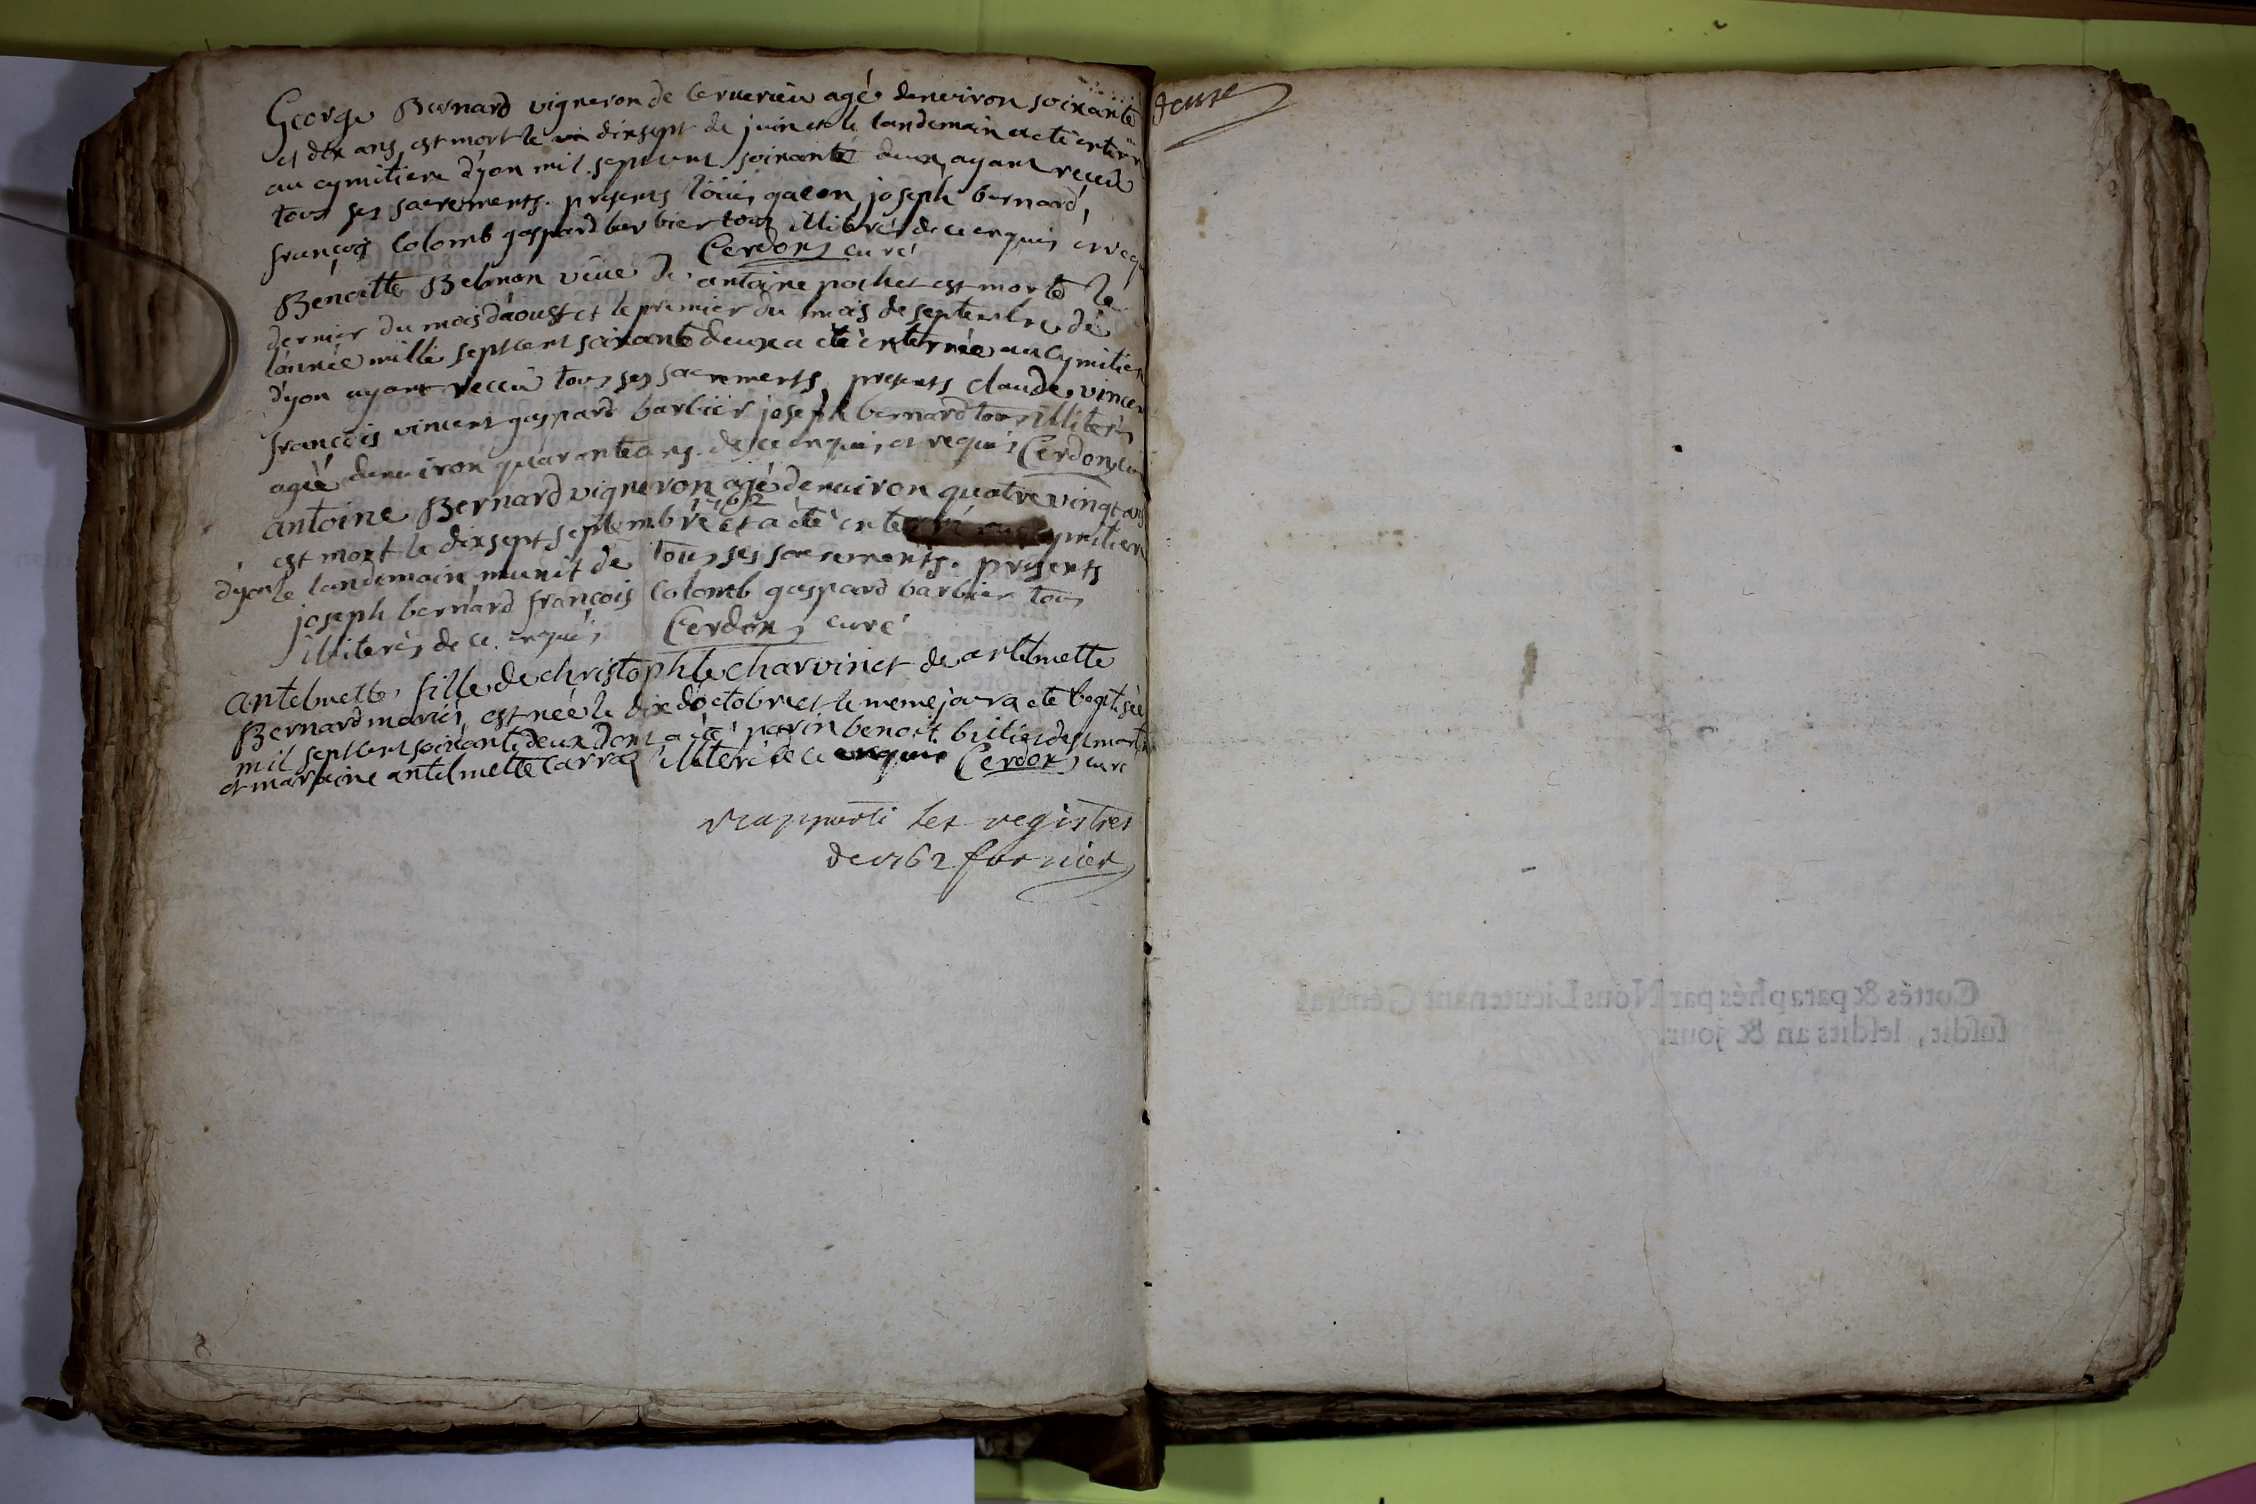 George Bernard vigneron de cerverieu agé denviron soixante
et dix ans est mort le dixsept de juin et le landemain a eté enterr
au cymitiere dyon mil septcent soixante deux, ayant receü
tous ses sacrements. presents loüis gacon, joseph bernard,
françois Colomb gaspard barbier tous illiterés de ce enquis et requ
Cerdon, curé
Benoitte Belmon veüe de antoine pochet est morte le
dernier du mois daoust et le premier du mois de septembre de
lannée mille septcent soixante deux a eté enterrée au Cymitier
dyon ayant receü tous ses sacrements, presents claude vincen
françois vincent gaspard barbier joseph bernard tous illiterés
agéé denviron quarante ans. de ce enquis et requis Cerdon, cu
antoine Bernard vigneron agé denviron quatre vingt ans
1762
est mort le dixsept septembre et a eté ente cymitiere
dyon le landemain munit de tous ses sacrements. presents
joseph bernard françois Colomb gaspard barbier tous
illiterés de ce enquis Cerdon, curé
antelmette fille de christophle charvin et de antelmette
Bernard mariés, est néé le dix doctobre et le meme jour a eté baptiséé
mil septcent soixante deux dont a été parin benoit
et maraine antelmette Carraz illiteré de ce enquis Cerdon, curé
rapporté les registres
de 1762 fornier